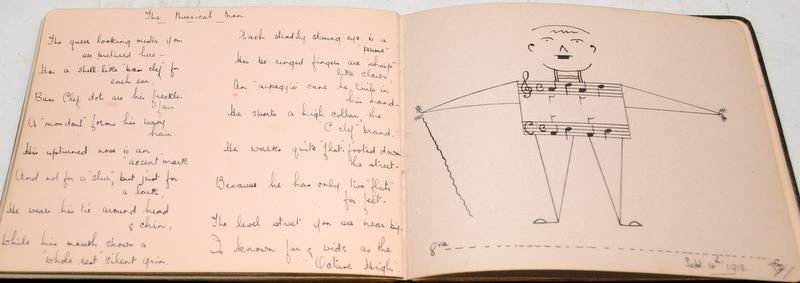 The Musical Man.
The queer looking mister you
see pictured here -
Has a shell-like "bass clef" for
each ear,
Bass Clef dots are his freckles
fair
A "mordent" forms his wavy
hair.
His upturned nose is an
"accent mark"
And not for a "slur" but just for
a lark,
He wears his tie around head
& chin,
While his mouth shows a
"whole rest" silent grin.
Each steadily staring eye is a
"pause"
His be ringed fingers are "sharps"
like claws,
An "arpeggio" cane he twirls in
his hand -
He sports a high collar, the
"C clef" brand.
He walks quite "flat-footed" down
the street -
Because he has only two "flats"
for feet.
The level street you see near by,
Is known far & wide as the
"Octave High"
8va
Sept 14th